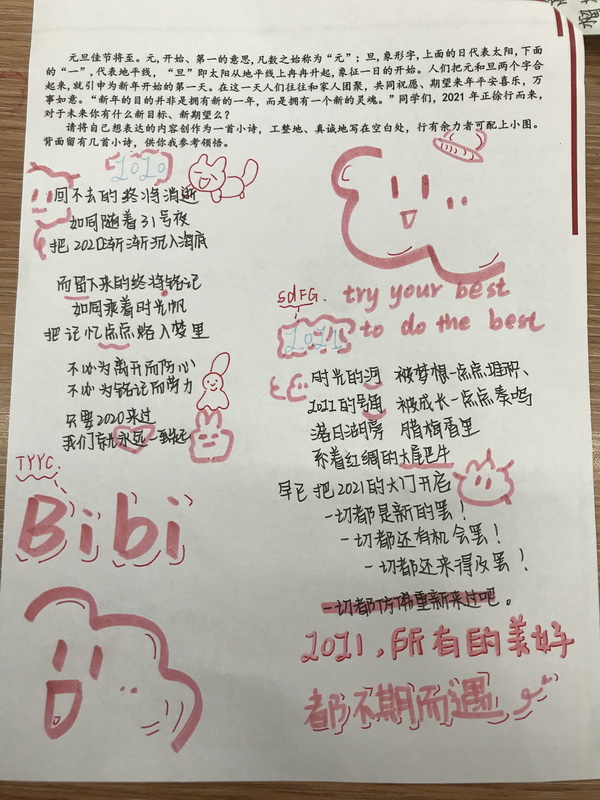 元旦佳节将至。元,开始、第一的意思,凡数之始称为“元”;旦,象形字,上面的日代表太阳,下面
的“一”,代表地平线,“旦”即太阳从地平线上冉冉升起,象征一日的开始。人们把元和旦两个字合
起来,就引申为新年开始的第一天。在这一天人们往往和家人团聚,共同祝愿、期望来年平安喜乐,万
事如意。“新年的目的并非是拥有新的一年,而是拥有一个新的灵魂。”同学们,2021 年正徐行而来,
对于未来你有什么新目标、新期望么?
请将自己想表达的内容创作为一首小诗,工整地、真诚地写在空白处,行有余力者可配上小图。
背面留有几首小诗,供你我参考领悟。
2020
回不去的终将消逝
如同随着31号夜
把2020渐渐沉入海底
而留下来的终将铭记
如同乘着时光帆
把记忆点点踏入梦里
不必为离开而伤心
不必为铭记而劳力
只要2020来过
我们就永远一起
TYYC.
Bibi
sdFG.
try your best
2021
to do the best
时光的河 被梦想一点点堆积、
2021的号角 被成长一点点奏鸣
落日湖旁 腊梅香里
系着红绸的大尾巴牛
早已把2021的大门开启
一切都是新的罢!
一切都还有机会罢!
一切都还来得及罢!
一切都仿佛重新来过吧。
2021,所有的美好
都不期而遇